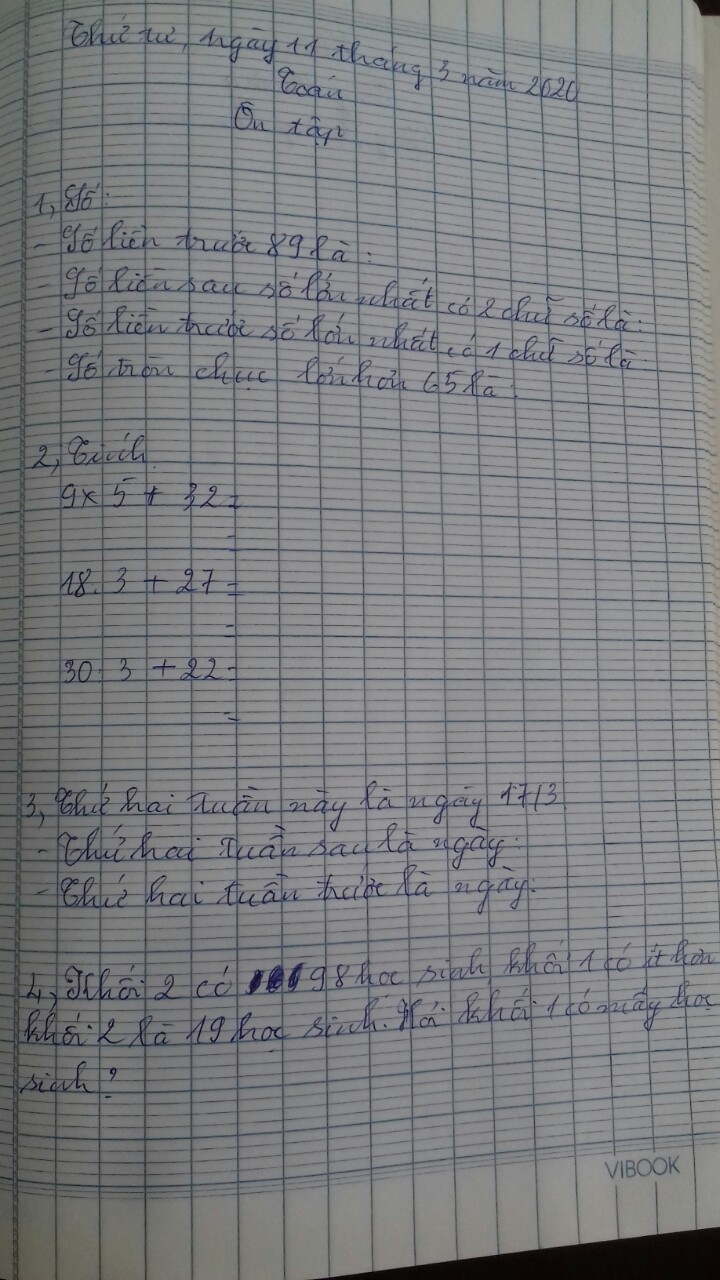 Thứ tư, ngày 11 tháng 3 năm 2020
Toán
Ôn tập
1, Số:
- Số liền trước 89 là:
- Số liền sau số lớn nhất có 2 chữ số là:
- Số liền trước số lớn nhất có 1 chữ số là
- Số tròn chục lớn hơn 65 là:
2, Tính
9 x 5 + 32 =
=
18 : 3 + 27 =
=
30 : 3 + 22 =
=
3, Thứ hai tuần này là ngày 17/3
- Thứ hai tuần sau là ngày:
- Thứ hai tuần trước là ngày:
4, Khối 2 có 98 học sinh, khối 1 có ít hơn
khối 2 là 19 học sinh. Hỏi khối 1 có mấy học
sinh?
VIBOOK